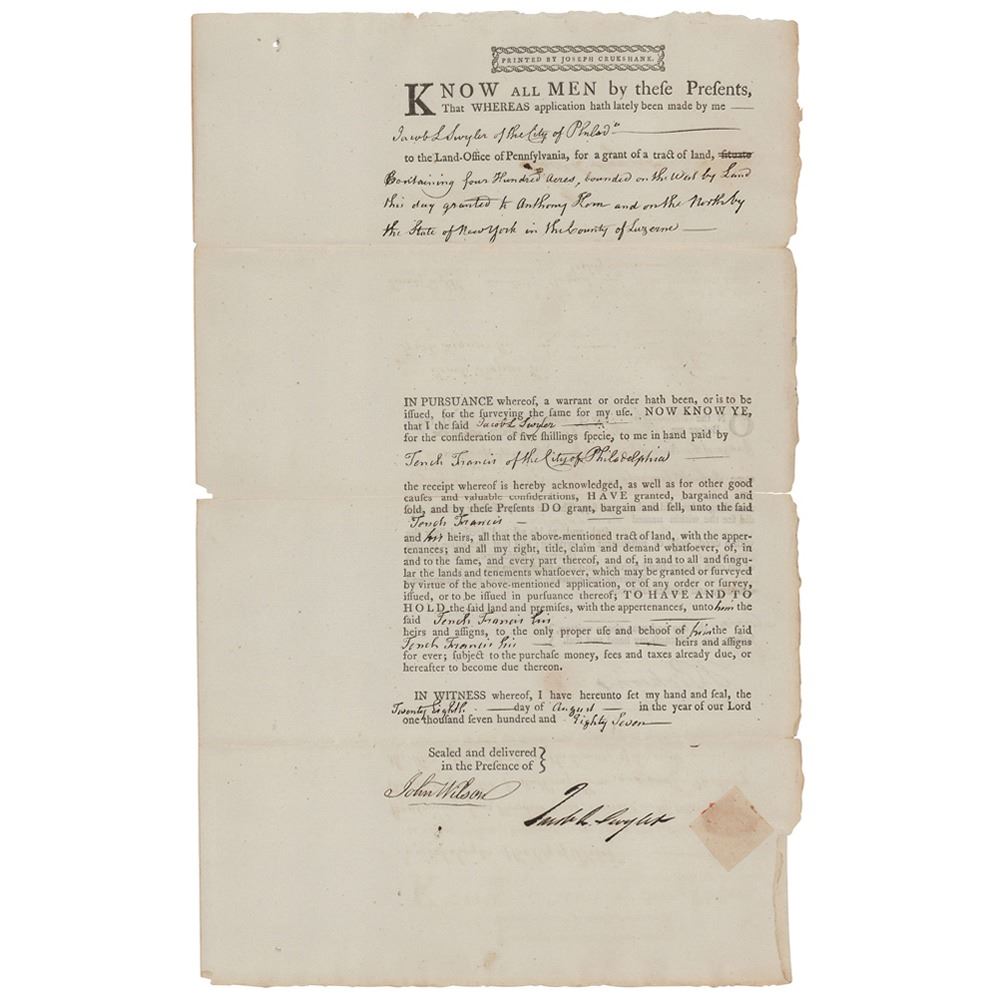 PRINTED BY JOSEPH CRUKSHANK.
KNOW ALL MEN by theſe Preſents,
That WHEREAS application hath lately been made by me
Jacob L Swyler of the City of Philad.ª
to the Land-Office of Pennſylvania, for a grant of a tract of land, ſituate
Containing four Hundred Acres, bounded on the West by Land
this day granted to Anthony Hom and on the North by
the State of New York in the County of Luzerne
IN PURSUANCE whereof, a warrant or order hath been, or is to be
iſſued, for the ſurveying the ſame for my uſe. NOW KNOW YE,
that I the ſaid Jacob L Swyler
for the conſideration of five ſhillings ſpecie, to me in hand paid by
Tench Francis of the City of Philadelphia
the receipt whereof is hereby acknowledged, as well as for other good
cauſes and valuable conſiderations, HAVE granted, bargained and
ſold, and by theſe Preſents DO grant, bargain and ſell, unto the ſaid
Tench Francis
and his heirs, all that the above-mentioned tract of land, with the apper-
tenances; and all my right, title, claim and demand whatſoever, of, in
and to the ſame, and every part thereof, and of, in and to all and ſingu-
lar the lands and tenements whatſoever, which may be granted or ſurveyed
by virtue of the above-mentioned application, or of any order or ſurvey,
iſſued, or to be iſſued in purſuance thereof; TO HAVE AND TO
HOLD the ſaid land and premiſes, with the appertenances, unto him the
ſaid Tench Francis his
heirs and aſſigns, to the only proper uſe and behoof of him the ſaid
Tench Francis his heirs and aſſigns
for ever; ſubject to the purchaſe money, fees and taxes already due, or
hereafter to become due thereon.
IN WITNESS whereof, I have hereunto ſet my hand and ſeal, the
Twenty Eighth day of August in the year of our Lord
one thouſand ſeven hundred and Eighty Seven
Sealed and delivered
in the Preſence of
John Wilson